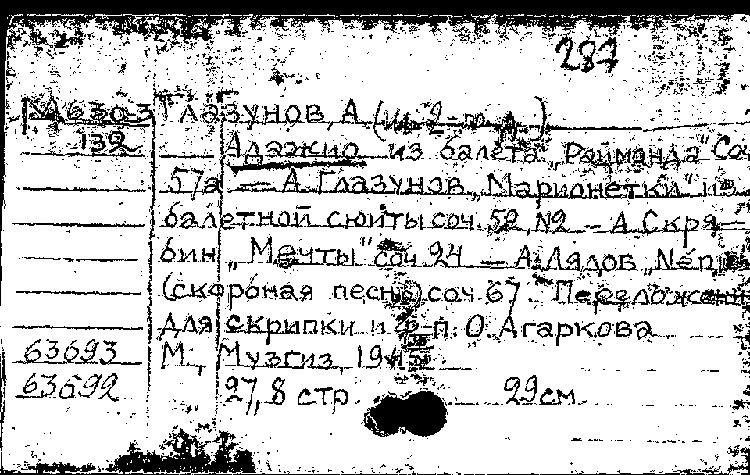 287
М6303 Глазунов, А.
132 Адажио из балета „Раймонда" Соч
57а — А. Глазунов „Марионетки" из
балетной сюиты соч. 52, №2 — А. Скря-
бин „Мечты" соч. 24 — А. Лядов
(скорбная песнь) соч. 67. Переложени
для скрипки и ф-п. О. Агаркова
63693 М., Музгиз,
63692 27, 8 стр. 29 см